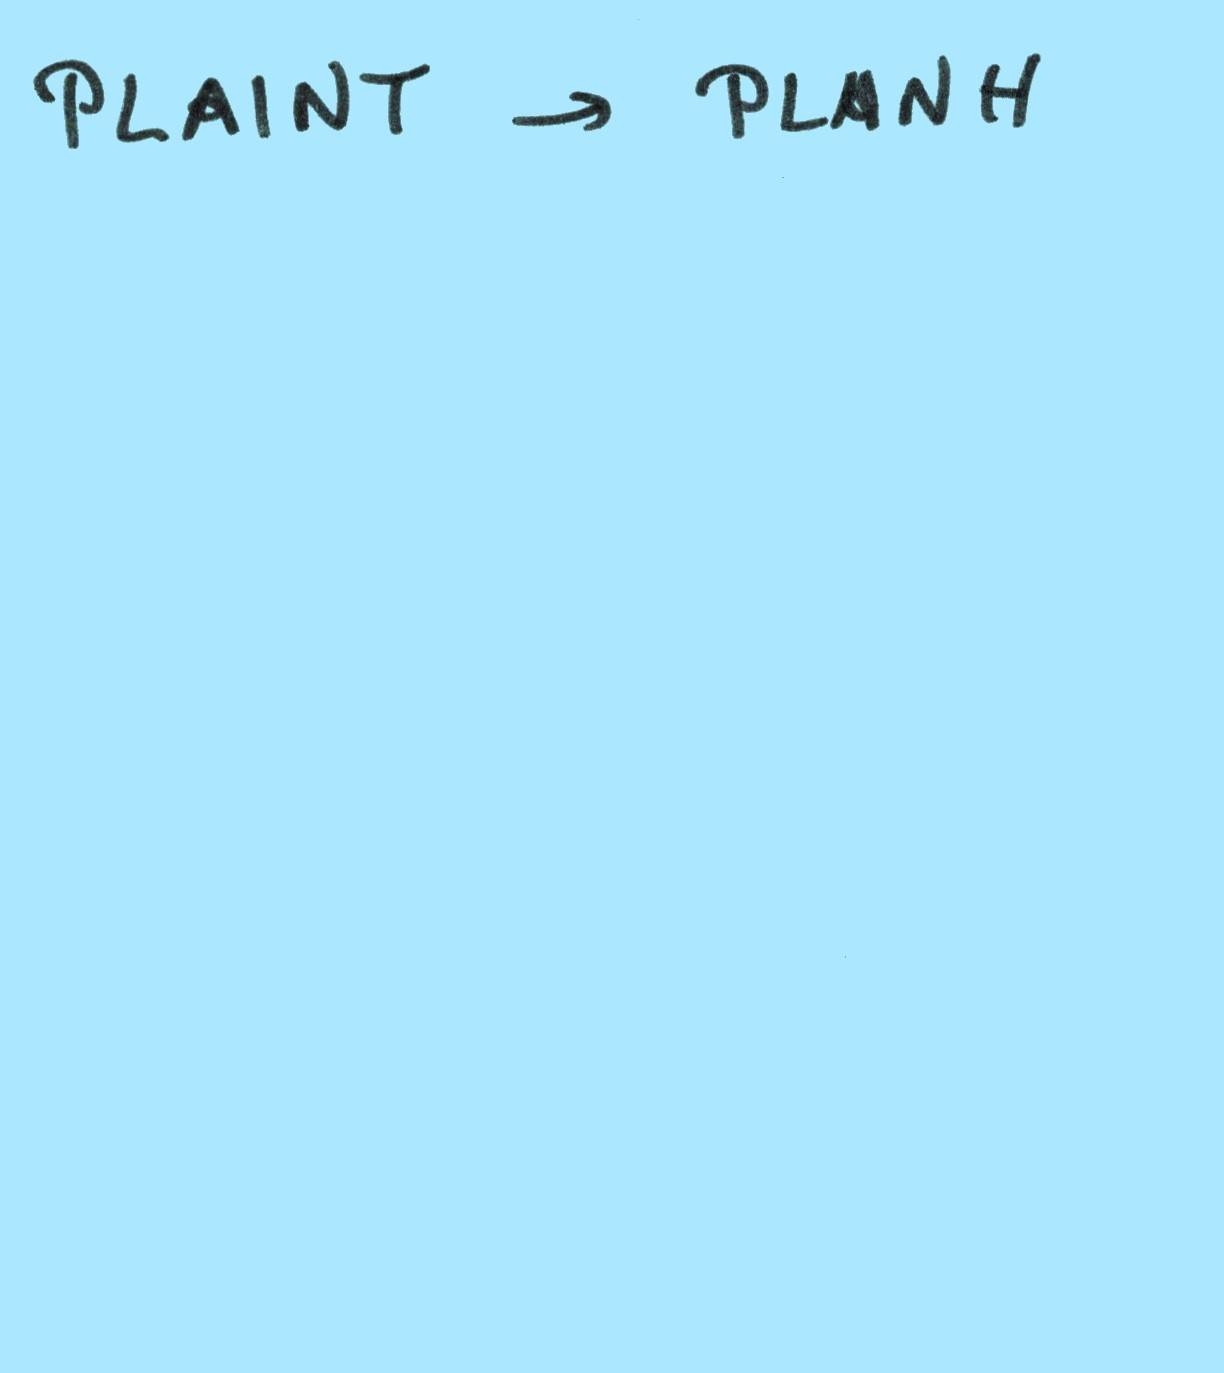 PLAINT → PLANH